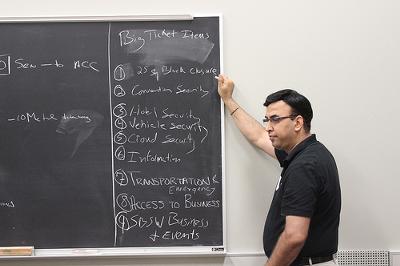 Sen - to ACC
-10 Meter
Big Ticket Items
① 25 of Block Closure
② Convention Security
③ Hotel Security
④ Vehicle Security
⑤ Crowd Security
⑥ Information
⑦ TRANSPORTATION &
Emergency
⑧ ACCESS TO BUSINESS
⑨ SBSW Business
+ Events